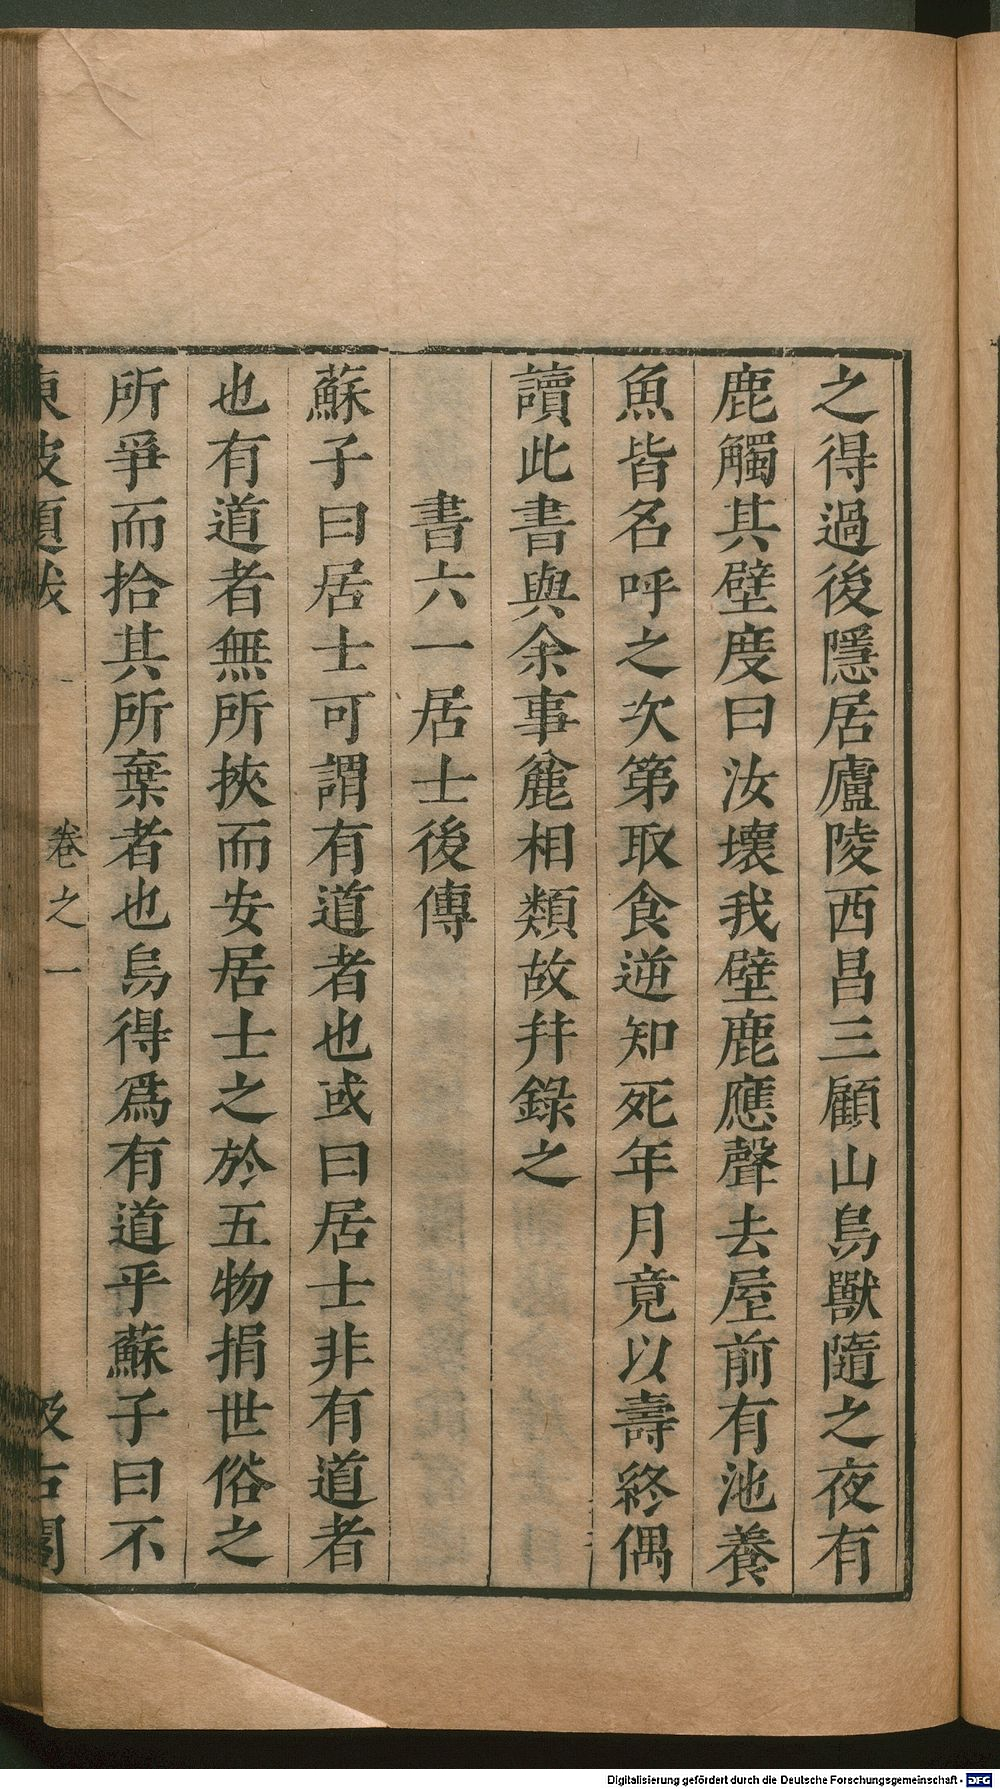 之得過後隱居廬陵西昌三顧山鳥獸隨之夜有
鹿觸其壁度曰汝壞我壁鹿應聲去屋前有池養
魚皆名呼之次第取食逆知死年月竟以壽終偶
讀此書與余事麄相類故幷錄之
書六一居士後傳
蘇子曰居士可謂有道者也或曰居士非有道者
也有道者無所挾而安居士之於五物捐世俗之
所爭而拾其所棄者也烏得爲有道乎蘇子曰不
東坡題跋 卷之一 汲古閣
Digitalisierung gefördert durch die Deutsche Forschungsgemeinschaft - DFG